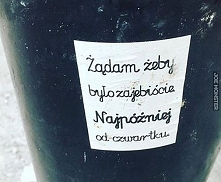 Żądam żeby
było zajebiście
Najpóźniej
od czwartku.